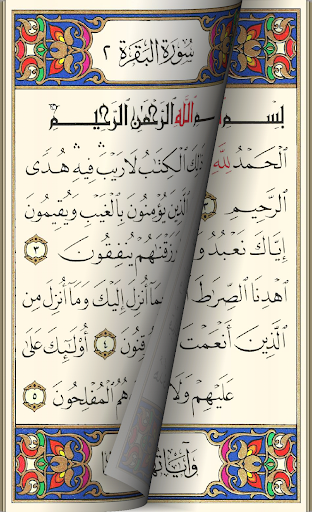 سُورَةُ البَقَرَةِ ٢
بِسْمِ ٱللَّهِ ٱلرَّحْمَٰنِ ٱلرَّحِيمِ
ٱلْحَمْدُ لِلَّهِ ٱلْكِتَٰبُ لَا رَيْبَ فِيهِ هُدًى
ٱلرَّحِيمِ ٣ ٱلَّذِينَ يُؤْمِنُونَ بِٱلْغَيْبِ وَيُقِيمُونَ
إِيَّاكَ نَعْبُدُ وَ زَقْنَٰهُمْ يُنفِقُونَ ٣
ٱهْدِنَا ٱلصِّرَٰطَ بِمَآ أُنزِلَ إِلَيْكَ وَمَآ أُنزِلَ مِن
ٱلَّذِينَ أَنْعَمْتَ قِنُونَ ٤ أُو۟لَٰٓئِكَ عَلَىٰ
عَلَيْهِمْ وَلَا هُمُ ٱلْمُفْلِحُونَ ٥
وَآيَاتُهَا